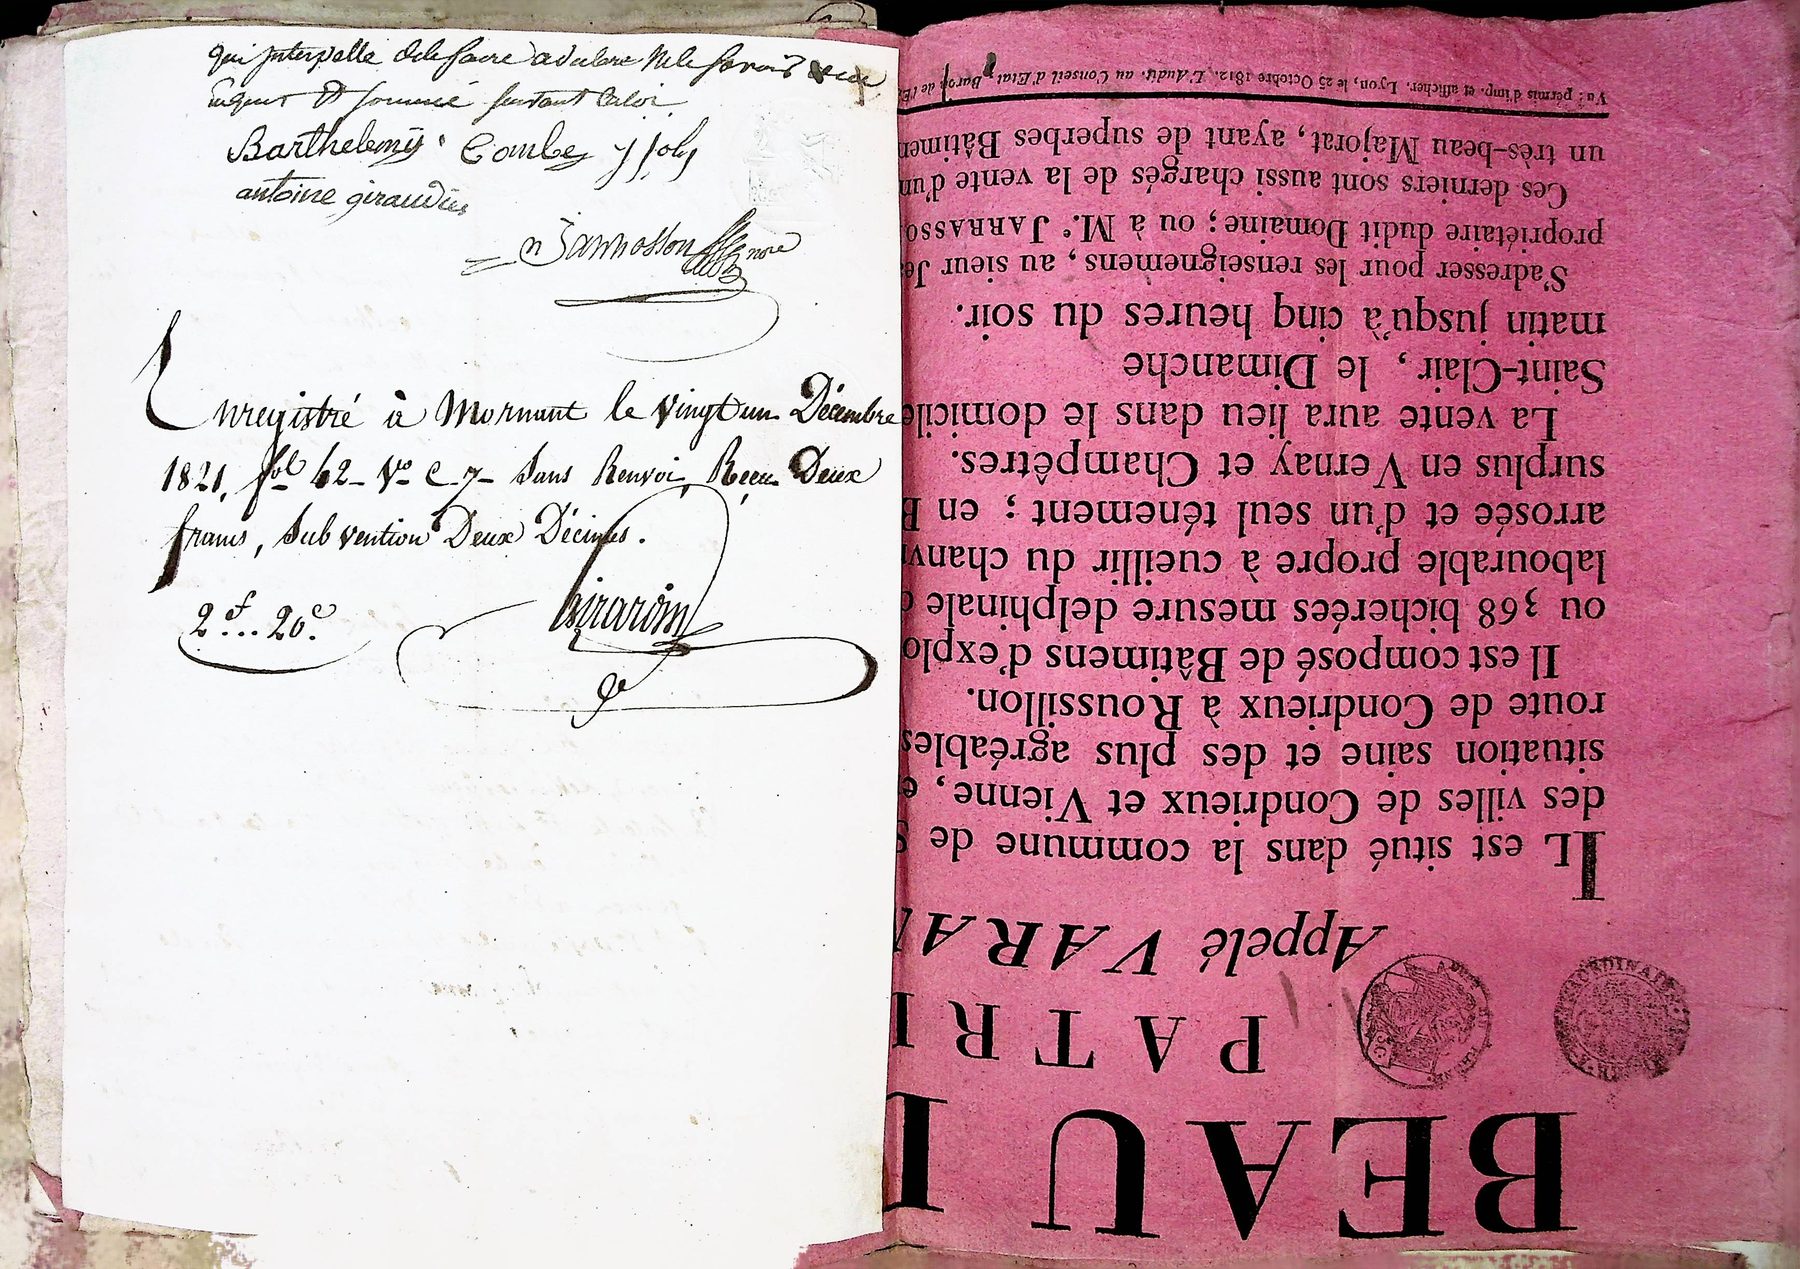 qui interpellé de le faire a declaré ne le savoir de ce
Enquis Et sommé suivant la loi
Barthelemy Combe j joly
antoine giraudier
n Jannosson nore
Enregistré à Mornant le vingt un Décembre
1821, fol 62 Vo C 7 Sans Renvoi, Reçu Deux
francs, Subvention Deux Décimes.
2f... 20c.
Girardin
BEAU
PATRI
Appelé VARA
IL est situé dans la commune de S
des villes de Condrieux et Vienne, e
situation saine et des plus agréables
route de Condrieux à Roussillon.
Il est composé de Bâtimens d'explo
ou 368 bicherées mesure delphinale
labourable propre à cueillir du chanv
arrosée et d'un seul ténement ; en
surplus en Vernay et Champêtres.
La vente aura lieu dans le domicile
Saint-Clair, le Dimanche
matin jusqu'à cinq heures du soir.
S'adresser pour les renseignemens, au sieur Je
propriétaire dudit Domaine ; ou à M.e JARRASSO
Ces derniers sont aussi chargés de la vente d'un
un très-beau Majorat, ayant de superbes Bâtimen
Vu : permis d'imp. et afficher. Lyon, le 25 Octobre 1812. L'Audit. au Conseil d'Etat, Baron de l'E